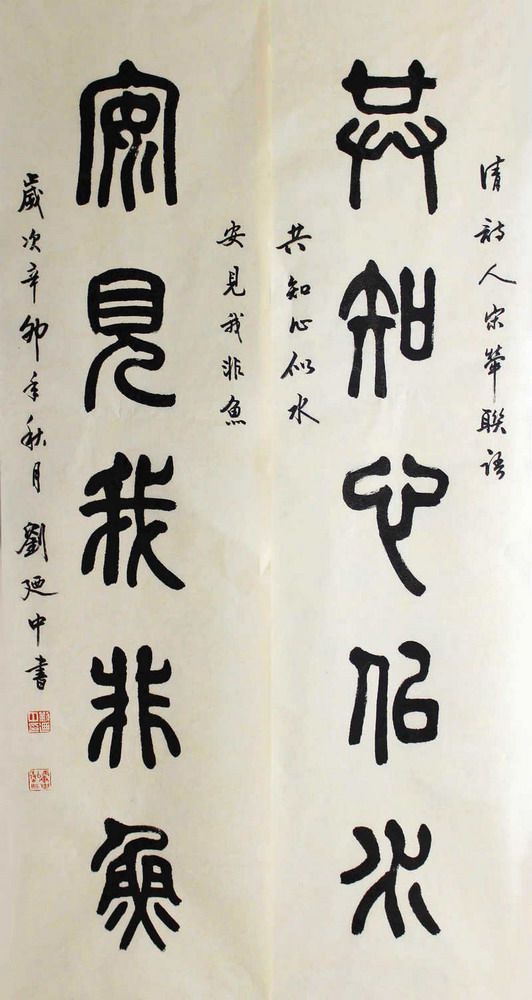 清詩人宋犖聯語
共知心似水
共知心似水
安見我非魚
安見我非魚
歲次辛卯年秋月劉廼中書